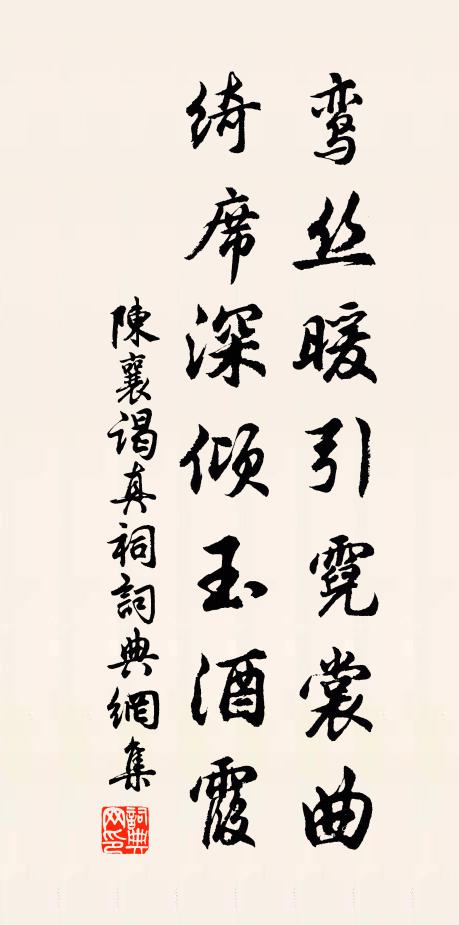 鸾丝暖引霓裳曲
绮席深倾玉酒霞
陳襄謁真祠詞典網集
詞典
网印